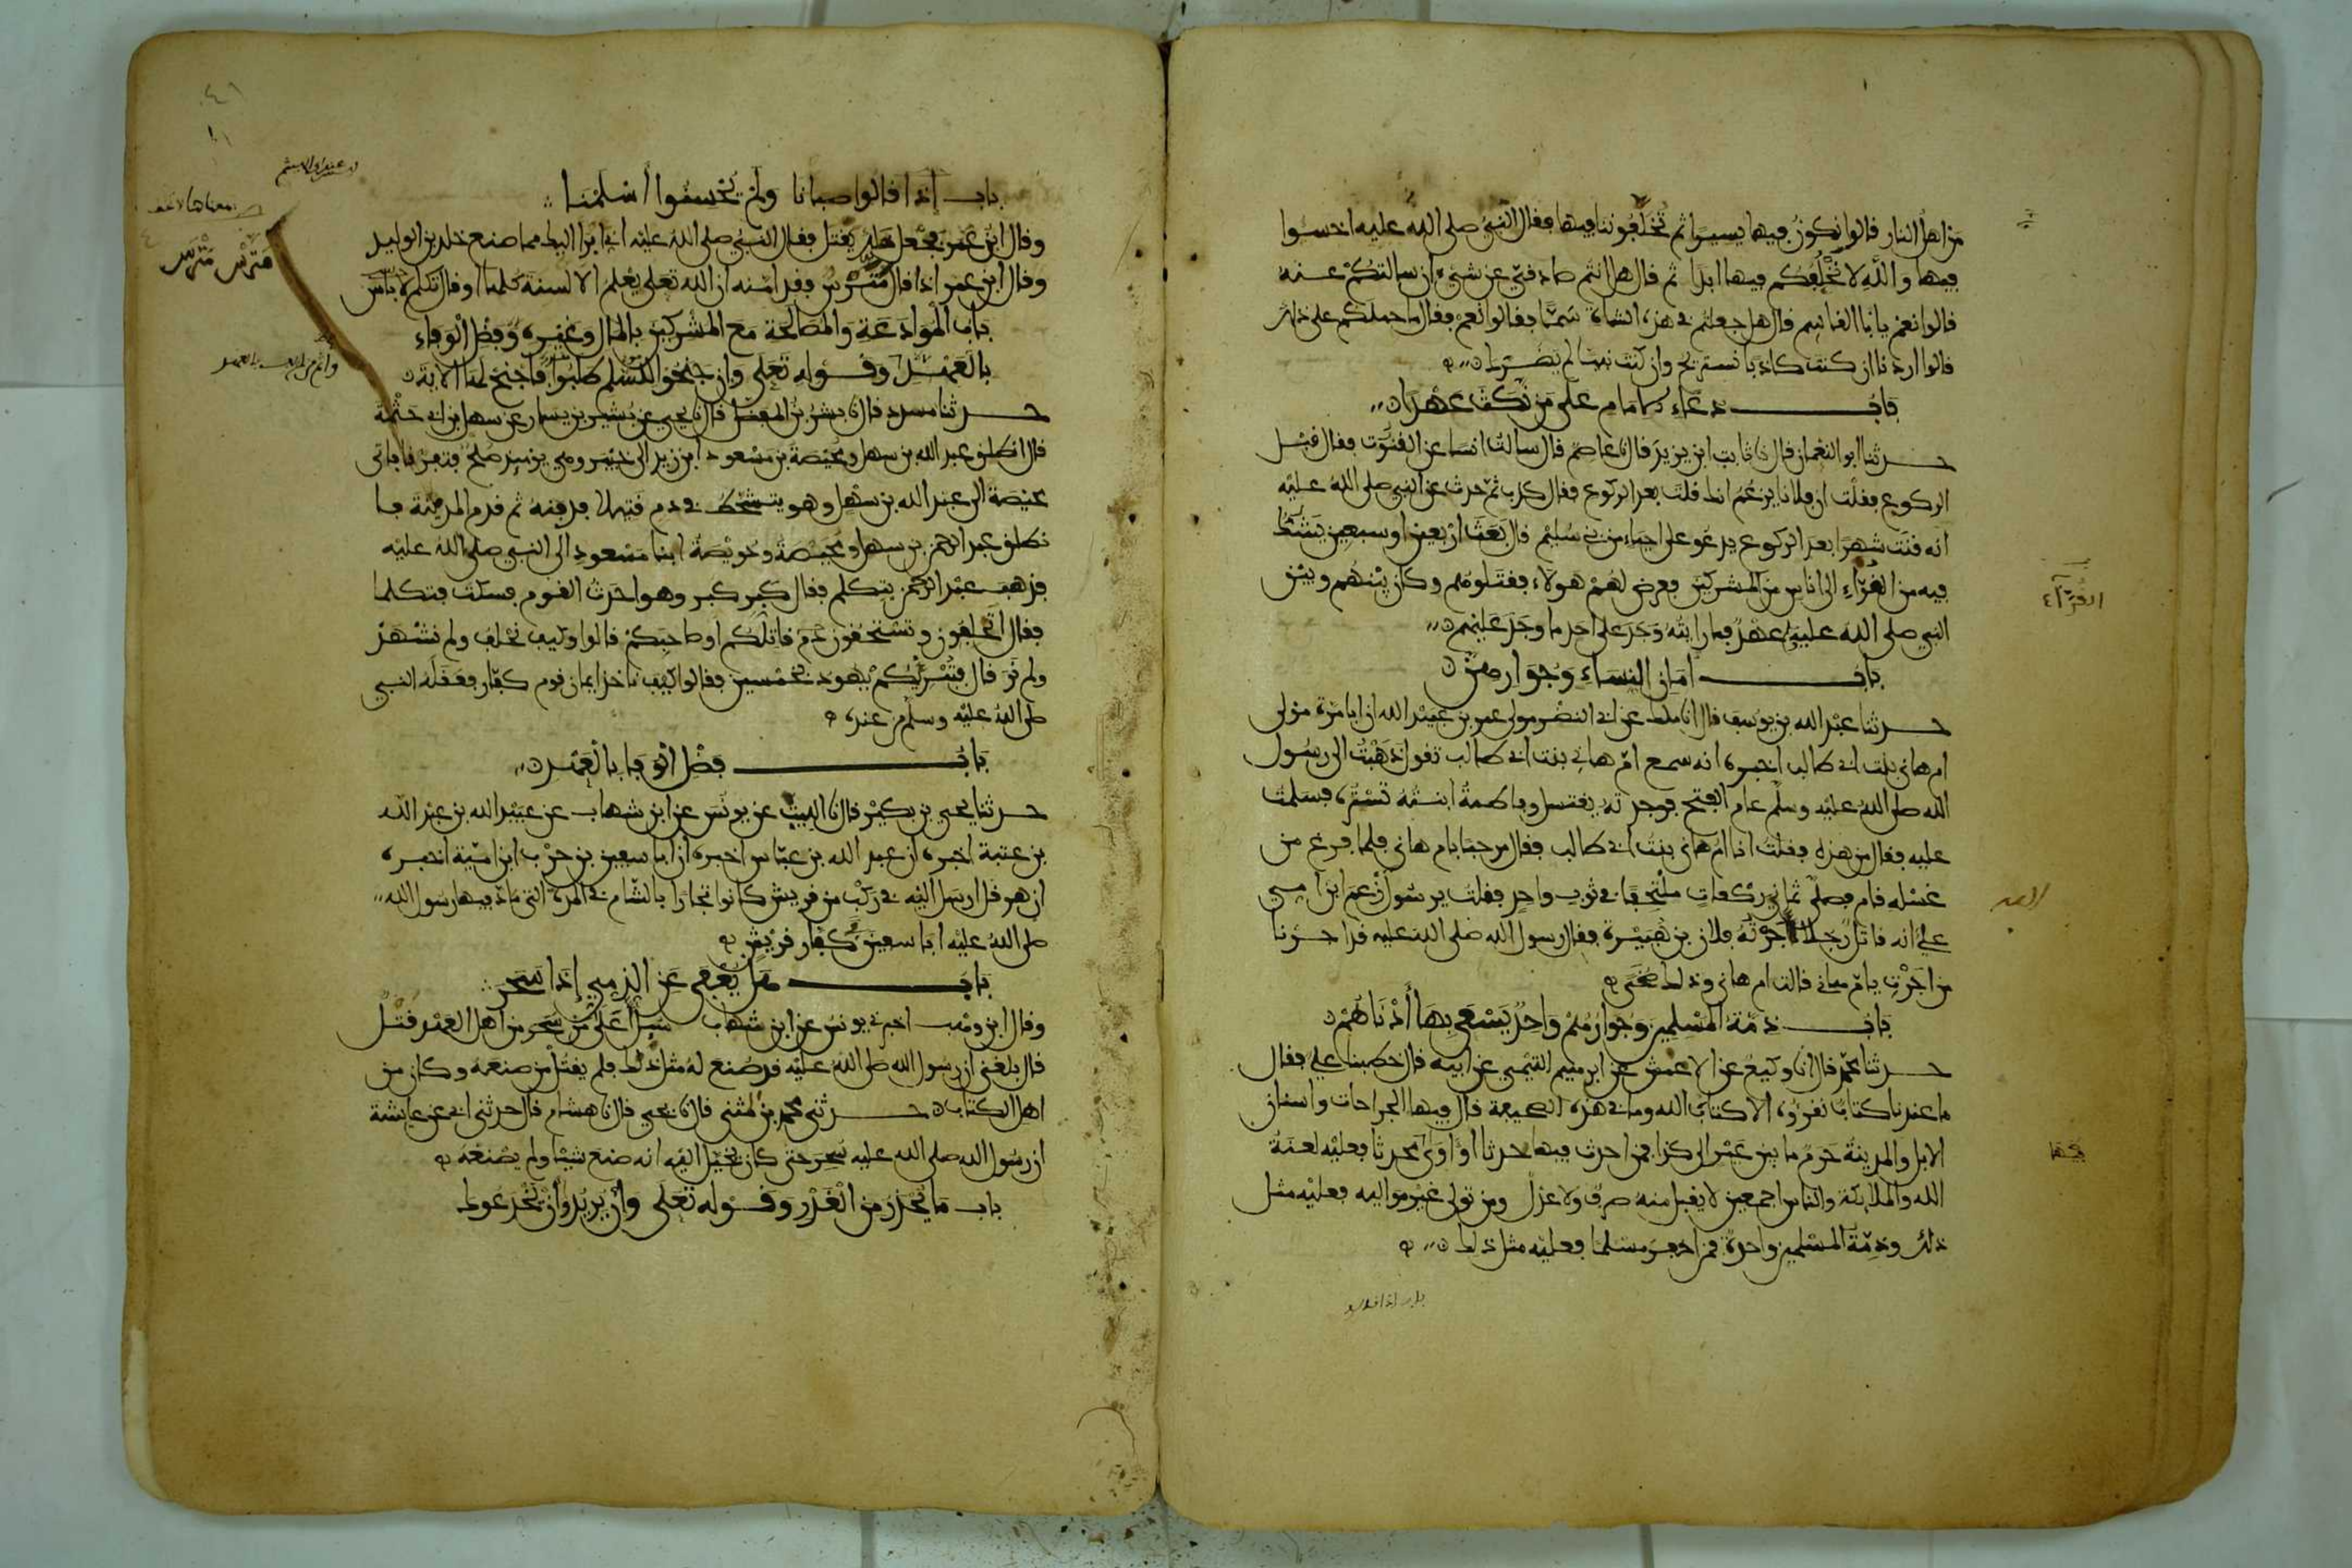 من اهل النار قالوا نكون فيها يسيرا ثم تخلفوننا فيها فقال النبي صلى الله عليه اخسئوا
فيها والله لا نخلفكم فيها ابدا ثم قال هل انتم صادقي عن شيء ان سالتكم عنه
قالوا نعم يا ابا القاسم قال هل جعلتم في هذه الشاة سما فقالوا نعم فقال ما حملكم على ذلك
قالوا اردنا ان كنت كاذبا نستريح وان كنت نبيا لم يضرك
باب دعاء الامام على من نكث عهدا
حدثنا ابو النعمان قال نا ثابت ابن يزيد قال نا عاصم قال سالت انسا عن القنوت فقال قبل
الركوع فقلت ان فلانا يزعم انك قلت بعد الركوع فقال كذب ثم حدث عن النبي صلى الله عليه
انه قنت شهرا بعد الركوع يدعو على احياء من بني سليم قال بعث اربعين او سبعين يشك
فيه من القراء الى اناس من المشركين فعرض لهم هولاء فقتلوهم وكان بينهم وبين
النبي صلى الله عليه عهد فما رايته وجد على احد ما وجد عليهم
القراء
باب امان النساء وجوارهن
حدثنا عبد الله بن يوسف قال انا ملك عن ابي النضر مولى عمر بن عبيد الله ان ابا مرة مولى
ام هاني بنت ابي طالب اخبره انه سمع ام هاني بنت ابي طالب تقول ذهبت الى رسول
الله صلى الله عليه وسلم عام الفتح فوجدته يغتسل وفاطمة ابنته تستره فسلمت
عليه فقال من هذه فقلت انا ام هاني بنت ابي طالب فقال مرحبا بام هاني فلما فرغ من
غسله قام فصلى ثماني ركعات ملتحفا في ثوب واحد فقلت يرسول زعم ابن امي
علي انه قاتل رجلا اجرته فلان بن هبيرة فقال رسول الله صلى الله عليه قد اجرنا
من اجرت يا ام هاني قالت ام هاني وذلك ضحى
باب ذمة المسلمين وجوارهم واحد يسعى بها ادناهم
حدثنا محمد قال انا وكيع عن الاعمش عن ابرهيم التيمي عن ابيه قال خطبنا علي فقال
ما عندنا كتاب نقروه الا كتاب الله وما في هذه الصحيفة قال فيها الجراحات واسنان
الابل والمدينة حرم ما بين عير الى كذا فمن احدث فيها حدثا او اوى محدثا فعليه لعنة
الله والملائكة والناس اجمعين لا يقبل منه صرف ولا عدل ومن تولى غير مواليه فعليه مثل
ذلك وذمة المسلمين واحدة فمن اخفر مسلما فعليه مثل ذلك
باب اذا قالوا
باب اذا قالوا صبانا ولم يحسنوا اسلمنا
وقال ابن عمر فجعل خلد يقتل فقال النبي صلى الله عليه اني ابرا اليك مما صنع خلد بن الوليد
وقال ابن عمر اذا قال مترس فقد امنه ان الله تعلى يعلم الالسنة كلها او قال تكلم لا باس
مترس مترس
باب الموادعة والمصالحة مع المشركين بالمال وغيره وفضل الوفاء
بالعهد وقوله تعلى وان جنحوا للسلم طلبوا فاجنح لها الاية
حدثنا مسدد قال نا بشر بن المفضل قال نا يحيى عن بشير بن يسار عن سهل بن ابي حثمة
قال انطلق عبد الله بن سهل ومحيصة بن مسعود ابن زيد الى خيبر وهي يومئذ صلح فتفرقا فاتى
محيصة الى عبد الله بن سهل وهو يتشحط في دم قتيلا فدفنه ثم قدم المدينة فا
نطلق عبد الرحمن بن سهل ومحيصة وحويصة ابنا مسعود الى النبي صلى الله عليه
فذهب عبد الرحمن يتكلم فقال كبر كبر وهو احدث القوم فسكت فتكلما
فقال اتحلفون وتستحقون دم قاتلكم او صاحبكم قالوا وكيف نحلف ولم نشهد
ولم نر قال فتبريكم يهود بخمسين فقالوا كيف ناخذ ايمان قوم كفار فعقله النبي
صلى الله عليه وسلم من عنده
باب فضل الوفا بالعهد
حدثنا يحيى بن بكير قال نا الليث عن يونس عن ابن شهاب عن عبيد الله بن عبد الله
بن عتبة اخبره ان عبد الله بن عباس اخبره ان ابا سفين بن حرب ابن امية اخبره
ان هرقل ارسل اليه في ركب من قريش كانوا تجارا بالشام في المدة التي ماد فيها رسول الله
صلى الله عليه ابا سفين في كفار قريش
باب هل يعفى عن الذمي اذا سحر
وقال ابن وهب اخبرني يونس عن ابن شهاب سئل اعلى من سحر من اهل العهد قتل
قال بلغني ان رسول الله صلى الله عليه قد صنع له مثل ذلك فلم يقتل من صنعه وكان من
اهل الكتاب حدثني محمد بن المثنى قال نا يحيى قال نا هشام قال حدثني ابي عن عائشة
ان رسول الله صلى الله عليه سحر حتى كان يخيل اليه انه صنع شيئا ولم يصنعه
باب ما يحذر من الغدر وقوله تعلى وان يريدوا ان يخدعوك